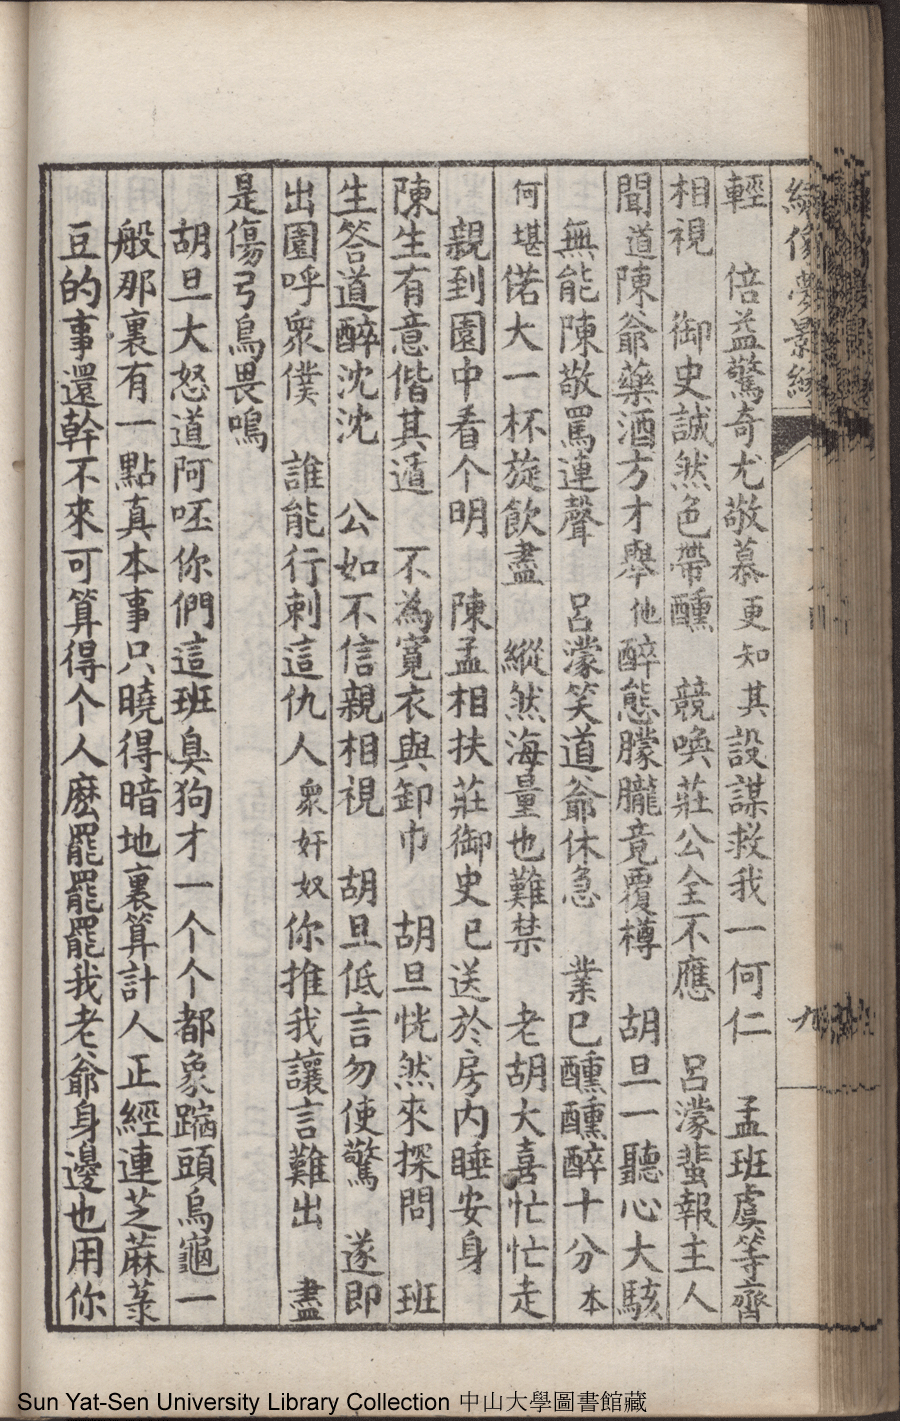 輕　倍益驚奇尤敬慕更知其設謀救我一何仁　孟班虞等齊
相視　御史誠然色帶醺　競喚莊公全不應　呂濛蜚報主人
聞道陳爺藥酒方才舉他醉態朦朧竟覆樽　胡旦一聽心大駭
無能陳敬罵連聲　呂濛笑道爺休急　業已醺醺醉十分本
何堪偌大一杯旋飲盡　縱然海量也難禁　老胡大喜忙忙走
親到園中看个明　陳孟相扶莊御史已送於房內睡安身
陳生有意偕其遁　不為寬衣與卸巾　胡旦恍然來探問　班
生答道醉沈沈　公如不信親相視　胡旦低言勿使驚　遂即
出園呼眾僕　誰能行刺這仇人眾奸奴你推我讓言難出　盡
是傷弓鳥畏鳴
胡旦大怒道阿呸你們這班臭狗才一个个都象蹹頭烏龜一
般那裏有一點真本事只曉得暗地裏算計人正經連芝蔴菉
豆的事還幹不來可算得个人麽罷罷罷我老爺身邊也用你
九
Sun Yat-Sen University Library Collection 中山大學圖書館藏